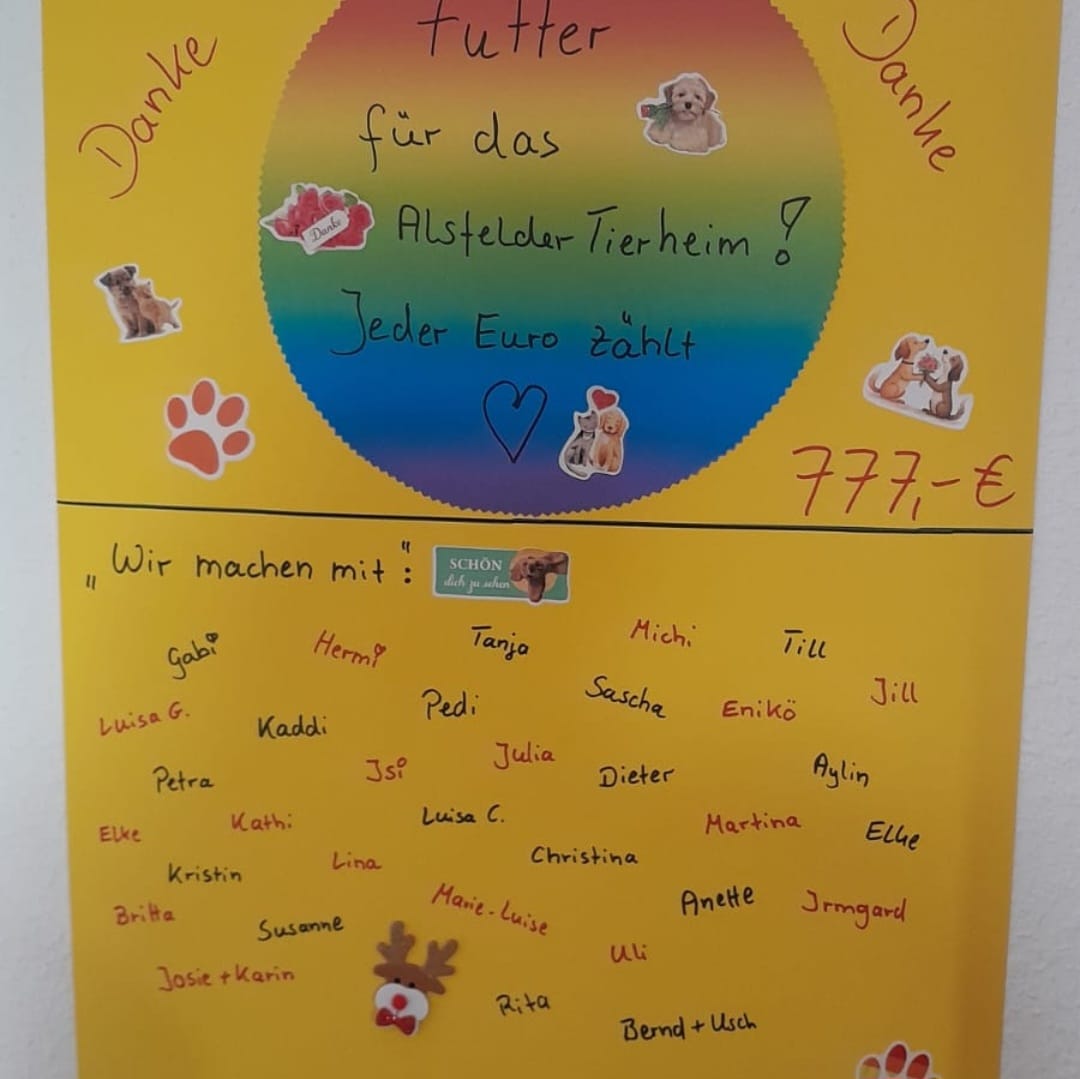 Danke
Danke
Futter
für das
Danke
Alsfelder Tierheim!
Jeder Euro zählt
777,-€
„Wir machen mit“:
SCHÖN
dich zu sehen
Gabi Hermi Tanja Michi Till
Luisa G. Kaddi Pedi Sascha Enikö Jill
Petra Isi Julia Dieter Aylin
Elke Kathi Luisa C. Martina Elke
Kristin Lina Christina
Britta Susanne Marie-Luise Anette Irmgard
Josie + Karin Uli
Rita Bernd + Usch